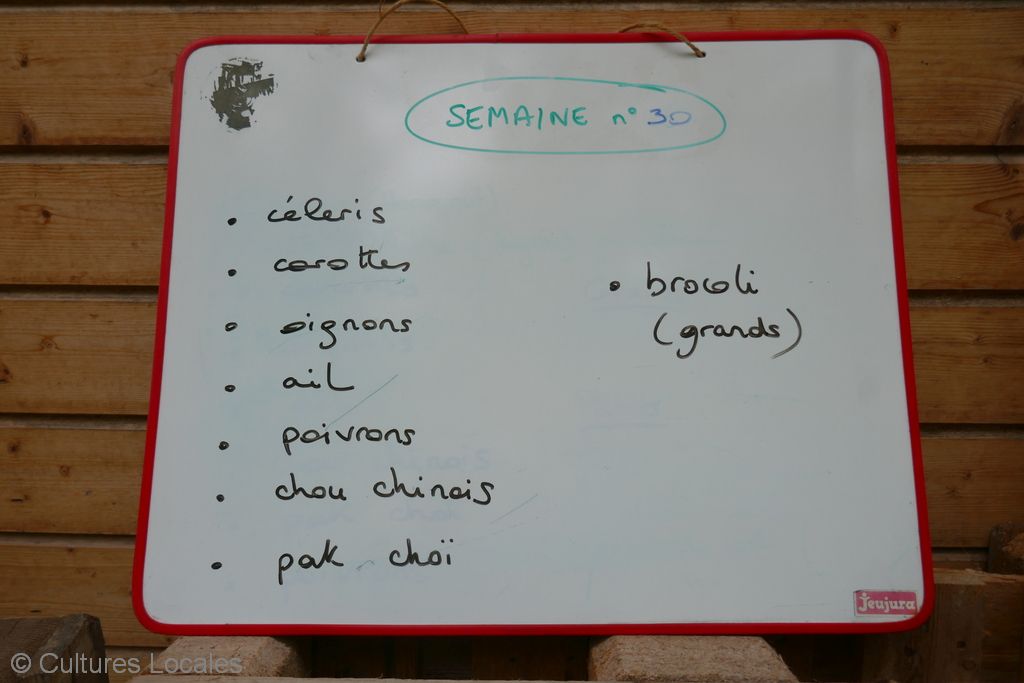 SEMAINE n° 30
• céleris
• carottes
• oignons
• ail
• poivrons
• chou chinois
• pak choï
• brocoli
(grands)
Jeujura
© Cultures Locales